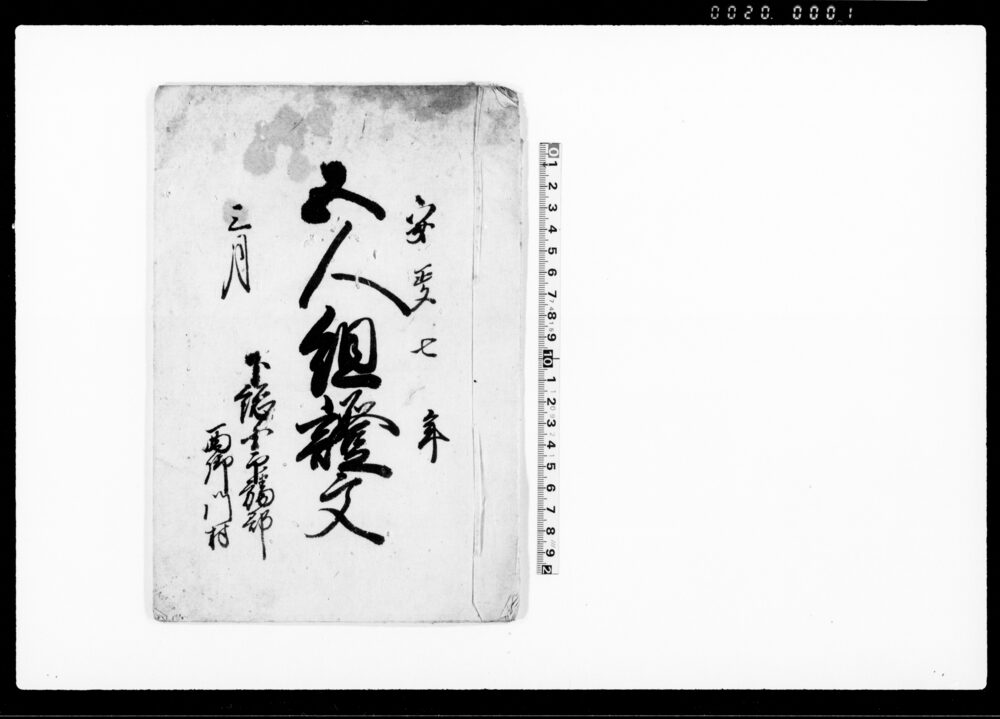 0020 0001
安政七年
五人組證文
三月
下総国印旛郡
西御門村